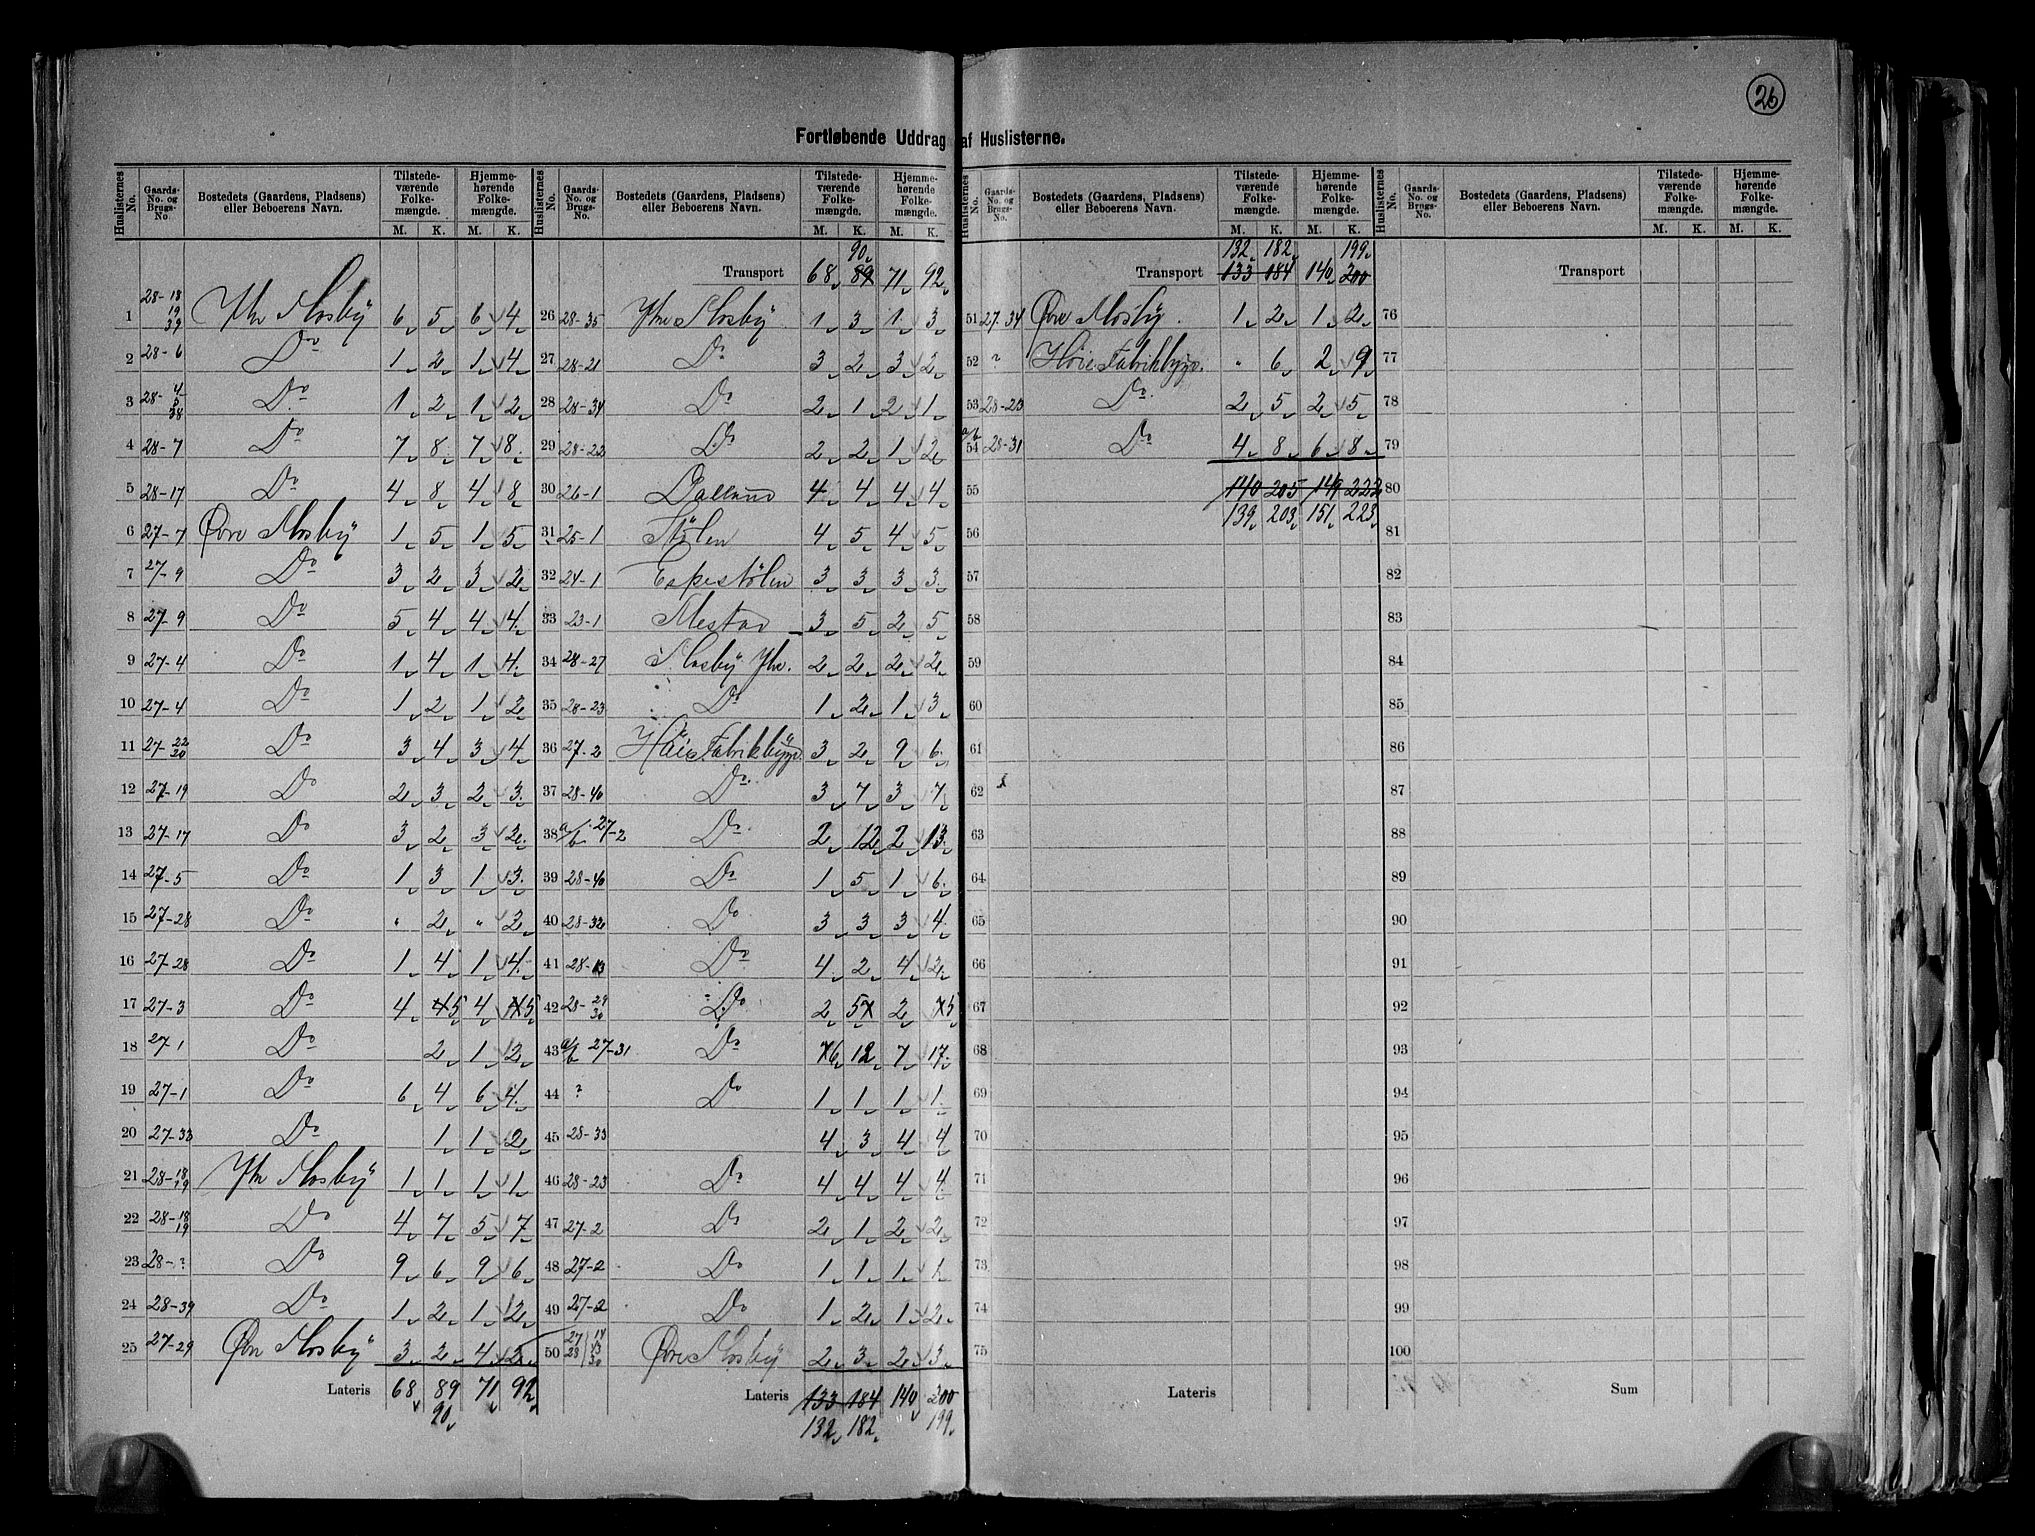 26
Fortløbende Uddrag af Huslisterne.
Huslisternes No. Gaards-No. og Brugs-No. Bostedets (Gaardens, Pladsens) eller Beboerens Navn. Tilstedeværende Folkemængde. M. K. Hjemmehørende Folkemængde. M. K.
1 28-18 19 39 Ytre Mosby 6 5 6 4
2 28-6 Do 1 2 1 4
3 28-4 5 38 Do 1 2 1 2
4 28-7 Do 7 8 7 8
5 28-17 Do 4 8 4 8
6 27-7 Øvre Mosby 1 5 1 5
7 27-9 Do 3 2 3 2
8 27-9 Do 5 4 4 4
9 27-4 Do 1 4 1 4
10 27-4 Do 1 2 1 2
11 27-22 20 Do 3 4 3 4
12 27-19 Do 2 3 2 3
13 27-17 Do 3 2 3 2
14 27-5 Do 1 3 1 3
15 27-28 Do " 2 " 2
16 27-28 Do 1 4 1 4
17 27-3 Do 4 5 4 5
18 27 1 Do 2 1 2
19 27-1 Do 6 4 6 4
20 27-33 Do 1 1 2
21 28-18 19 Ytre Mosby 1 1 1 1
22 28-18 19 Do 4 7 5 7
23 28-? Do 9 6 9 6
24 28-39 Do 1 2 1 2
25 27-29 Øvre Mosby 3 2 4 2
Lateris 68 89 71 92
90
Huslisternes No. Gaards-No. og Brugs-No. Bostedets (Gaardens, Pladsens) eller Beboerens Navn. Tilstedeværende Folkemængde. M. K. Hjemmehørende Folkemængde. M. K.
90
Transport 68 89 71 92
26 28-35 Ytre Mosby 1 3 1 3
27 28-21 Do 3 2 3 2
28 28-34 Do 2 1 2 1
29 28-22 Do 2 2 1 2
30 26-1 Dalland 4 4 4 4
31 25-1 Stölen 4 5 4 5
32 24-1 Espestölen 3 3 3 3
33 23-1 Mestad 3 5 2 5
34 28-27 Mosby Ytre. 2 2 2 2
35 28-23 Do 1 2 1 3
36 27-2 Höie Fabrikbygg. 3 2 9 6
37 28-40 Do 3 7 3 7
38 a/b 27-2 Do 2 12 2 13
39 28-40 Do 1 5 1 6
40 28-32 Do 3 3 3 4
41 28-13 Do 4 2 4 2
42 28-29 30 Do 2 5 2 5
43 a/b 27-31 Do 6 12 7 17
44 ? Do 1 1 1 1
45 28-33 4 3 4 4
46 28-23 Do 4 4 4 4
47 27-2 Do 2 1 2 2
48 27-2 Do 1 1 1 1
49 27-2 Do 1 2 1 2
50 27 28 14 13 30 Øvre Mosby 2 3 2 3
Lateris 133 184 140 200
132 182 199
Huslisternes No. Gaards-No. og Brugs-No. Bostedets (Gaardens, Pladsens) eller Beboerens Navn. Tilstedeværende Folkemængde. M. K. Hjemmehørende Folkemængde. M. K.
132 182 199
Transport 133 184 140 200
51 27-34 Øvre Mosby. 1 2 1 2
52 ? Höie Fabrikbygg. " 6 2 9
53 28-23 Do 2 5 2 5
54 a/b 28-31 Do 4 8 6 8
55 140 205 149 222
139 203 151 223
56
57
58
59
60
61
62
63
64
65
66
67
68
69
70
71
72
73
74
75
Lateris
Huslisternes No. Gaards-No. og Brugs-No. Bostedets (Gaardens, Pladsens) eller Beboerens Navn. Tilstedeværende Folkemængde. M. K. Hjemmehørende Folkemængde. M. K.
Transport
76
77
78
79
80
81
82
83
84
85
86
87
88
89
90
91
92
93
94
95
96
97
98
99
100
Sum